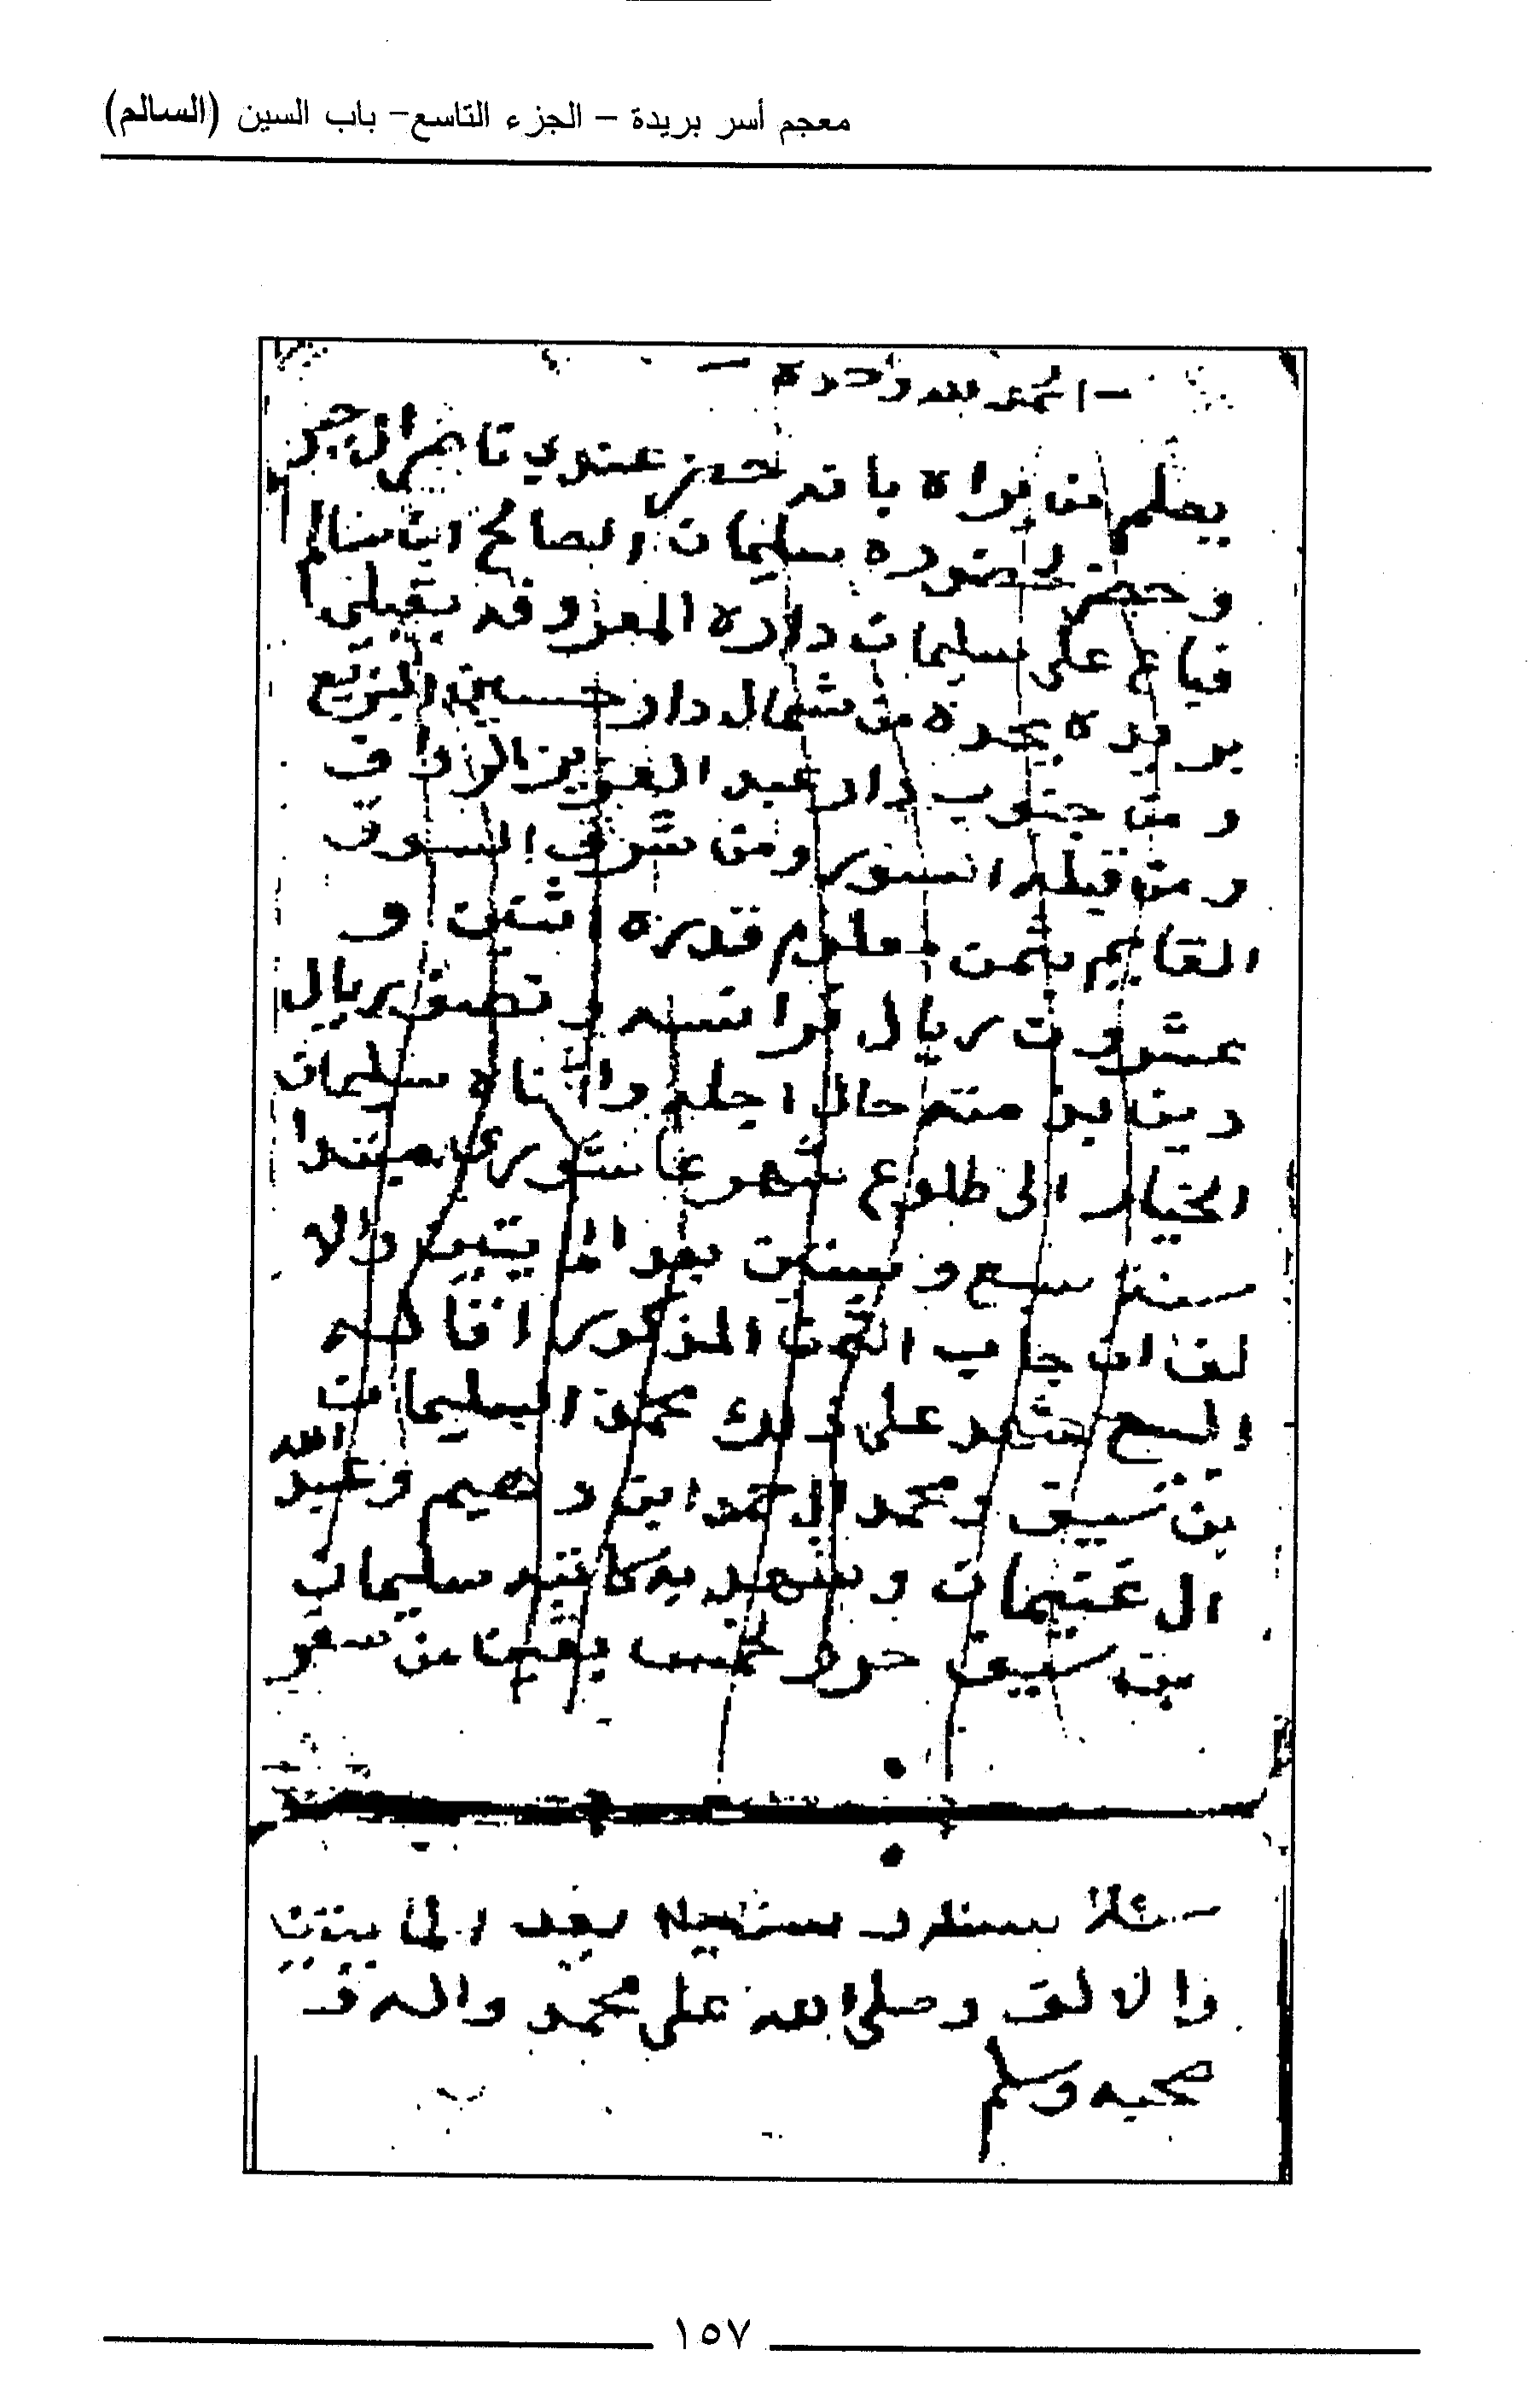 معجم أسر بريدة – الجزء التاسع– باب السين (السالم)
الحمد لله وحده
يعلم من يراه بانه حضر عندي ناصر ال
وحضر لحضوره سليمان الصالح ابن سالم
فباع على سليمان داره المعروفه بقبلي
بريده يحده من شمال دار حسين
ومن جنوب دار عبد العزيز الرواف
ومن قبله السور ومن شرق السوق
القايم بثمن معلوم قدره اثنين و
عشرون ريال فرانسه ونصف ريال
دين بذمته حال اجله وا سليمان
الخيار الى طلوع شهر عاشوري مبتدا
سنة سبع وستين بعد المايتين والا
لف ان جاب الثمن المذكور والا
البيع شهد على ذلك محمد السليمان
بن سيف ومحمد الحمد ابن دهيم وعبد الله
ال عثيمان وشهد به كاتبه سليمان
بن سيف حرر لخمس بقين من سفر
سنة بعد المايتين
والالف وصلى الله على محمد واله و
صحبه وسلم
١٥٧